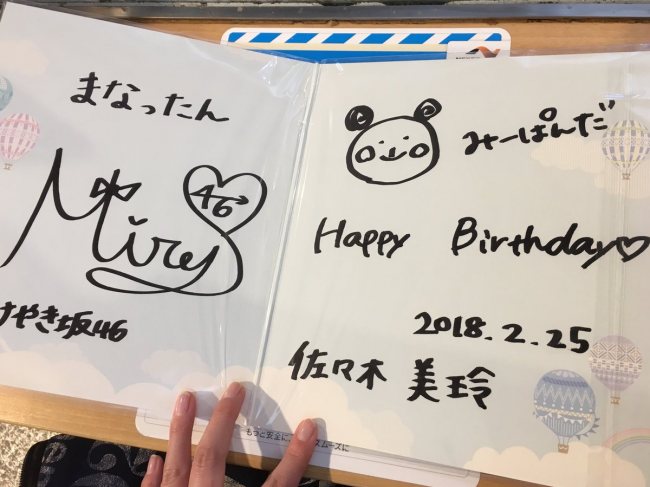 まなったん
Mirei
46
けやき坂46
みーぱんだ
Happy Birthday♡
2018.2.25
佐々木 美玲
もっと安全に
ズムーズに